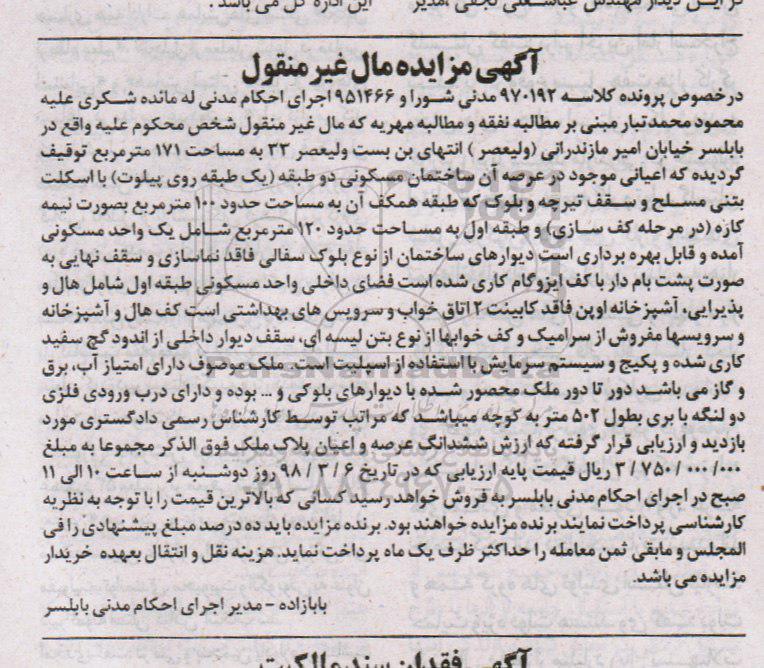 در این دیدار مهندس عباسعلی نجفی (مدیر این اداره کل می باشد .
آگهی مزایده مال غیر منقول
درخصوص پرونده کلاسه ۹۷۰۱۹۲ مدنی شورا و ۹۵۱۴۶۶ اجرای احکام مدنی له مانده شکری علیه
محمود محمدتبار مبنی بر مطالبه نفقه و مطالبه مهریه که مال غیر منقول شخص محکوم علیه واقع در
بابلسر خیابان امیر مازندرانی (ولیعصر) انتهای بن بست ولیعصر ۳۳ به مساحت ۱۷۱ مترمربع توقیف
گردیده که اعیانی موجود در عرصه آن ساختمان مسکونی دو طبقه (یک طبقه روی پیلوت) با اسکلت
بتنی مسلح و سقف تیرچه و بلوک که طبقه همکف آن به مساحت حدود ۱۰۰ مترمربع بصورت نیمه
کاره (در مرحله کف سازی) و طبقه اول به مساحت حدود ۱۲۰ مترمربع شامل یک واحد مسکونی
آمده و قابل بهره برداری است دیوارهای ساختمان از نوع بلوک سفالی فاقد نماسازی و سقف نهایی به
صورت پشت بام دار با کف ایزوگام کاری شده است فضای داخلی واحد مسکونی طبقه اول شامل هال و
پذیرایی، آشپزخانه اوپن فاقد کابینت ۲ اتاق خواب و سرویس های بهداشتی است کف هال و آشپزخانه
و سرویسها مفروش از سرامیک و کف خوابها از نوع بتن لیسه ای، سقف دیوار داخلی از اندود گچ سفید
کاری شده و پکیج و سیستم سرمایش با استفاده از اسپلیت است. ملک موصوف دارای امتیاز آب، برق
و گاز می باشد دور تا دور ملک محصور شده با دیوارهای بلوکی و ... بوده و دارای درب ورودی فلزی
دو لنگه با بری بطول ۵۰۲ متر به کوچه میباشد که مراتب توسط کارشناس رسمی دادگستری مورد
بازدید و ارزیابی قرار گرفته که ارزش ششدانگ عرصه و اعیان پلاک ملک فوق الذکر مجموعا به مبلغ
۳/۷۵۰/۰۰۰/۰۰۰ ریال قیمت پایه ارزیابی که در تاریخ ۶ / ۳ / ۹۸ روز دوشنبه از ساعت ۱۰ الی ۱۱
صبح در اجرای احکام مدنی بابلسر به فروش خواهد رسید کسانی که بالاترین قیمت را با توجه به نظریه
کارشناسی پرداخت نمایند برنده مزایده خواهند بود. برنده مزایده باید ده درصد مبلغ پیشنهادی را فی
المجلس و مابقی ثمن معامله را حداکثر ظرف یک ماه پرداخت نماید. هزینه نقل و انتقال بعهده خریدار
مزایده می باشد.
بابازاده - مدیر اجرای احکام مدنی بابلسر
آگهی فقدان سند مالکیت